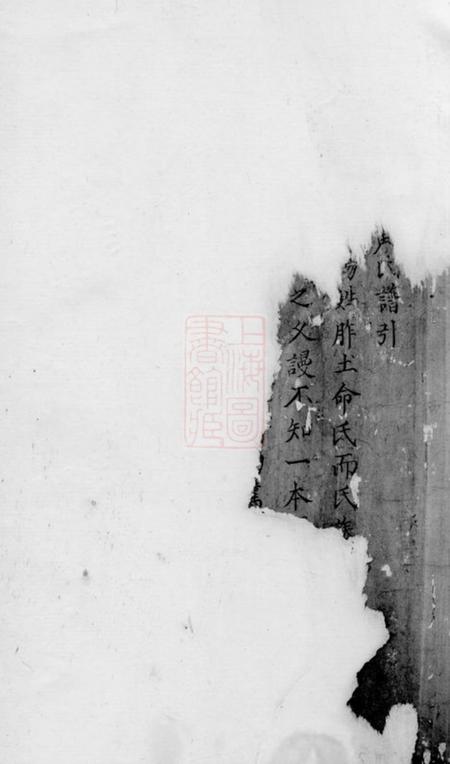 氏譜引
姓胙土命氏而氏族
之父謾不知一本
上海圖書館藏